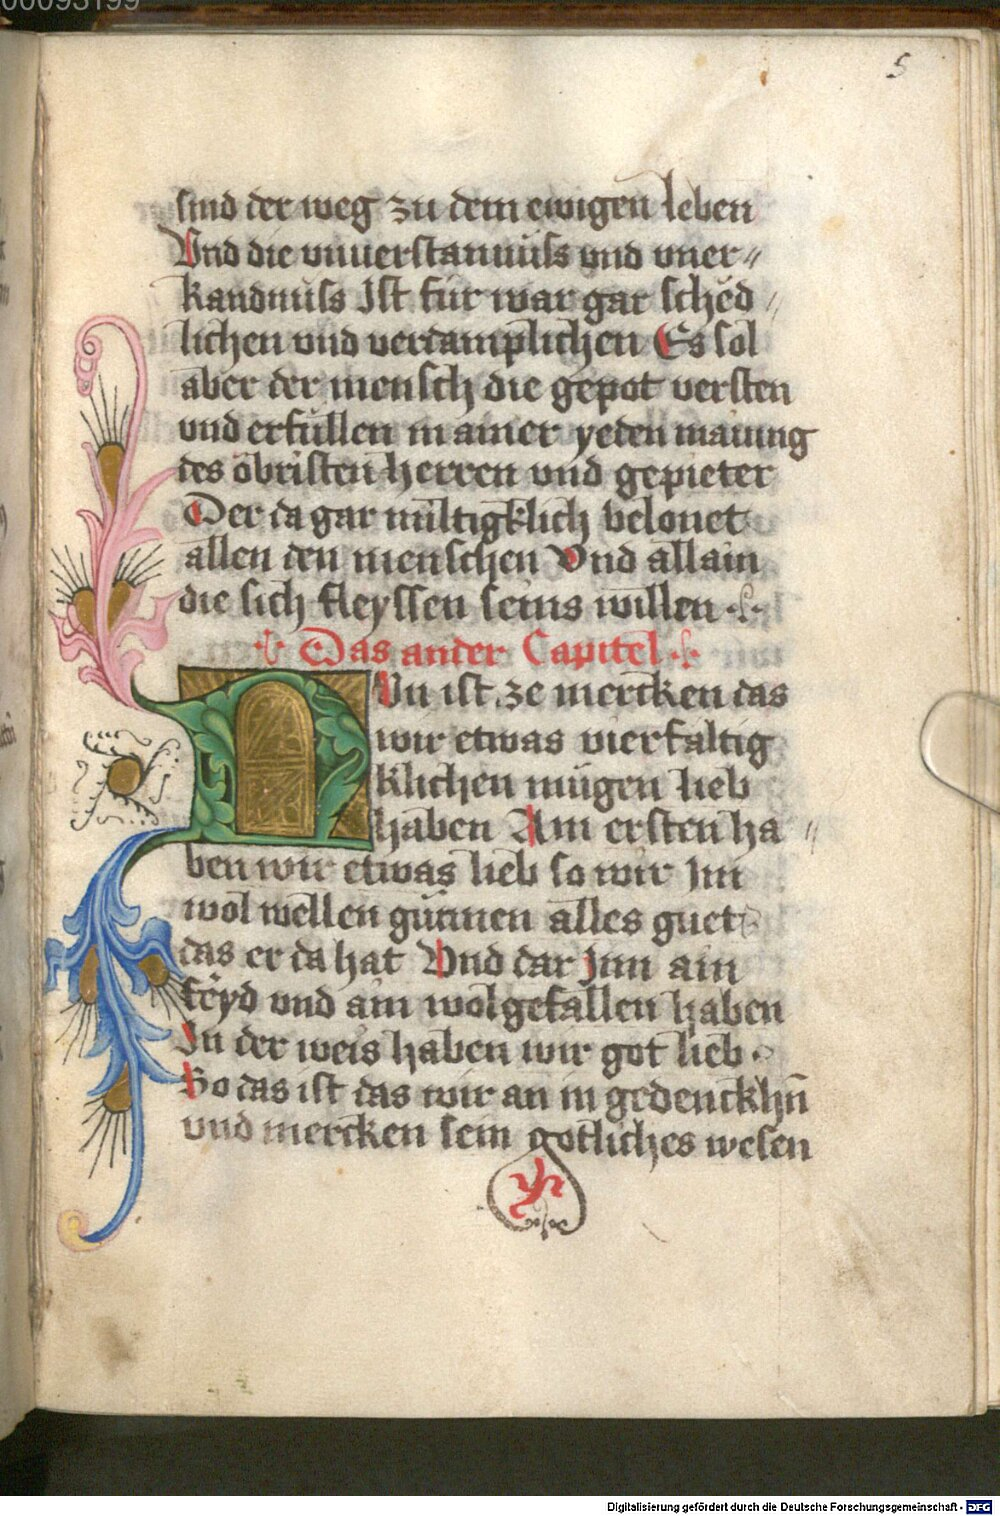 00093199
5
sind der weg zu dem ewigen leben
Vnd die vnuerstannüss vnd vner⸗
kandnüss Ist für war gar schëd⸗
lichen vnd verdamplichen Es sol
aber der mensch die gepot versten
vnd erfüllen in ainer yeden mainung
des öbristen herren vnd gepieter
Der da gar miltigklich belonet
allen den menschen Vnd allain
die sich fleyssen seins willen
Das ander Capitel
NVn ist ze mercken das
wir etwas vierfaltig
klichen mügen lieb
haben Am ersten ha⸗
ben wir etwas lieb so wir Im
wol wellen günnen alles guet
das er da hat Vnd dar Inn ain
frëyd vnd ain wolgefallen haben
In der weis haben wir got lieb
So das ist das wir an in gedenckhn̄
vnd mercken sein gotliches wesen
Digitalisierung gefördert durch die Deutsche Forschungsgemeinschaft - DFG